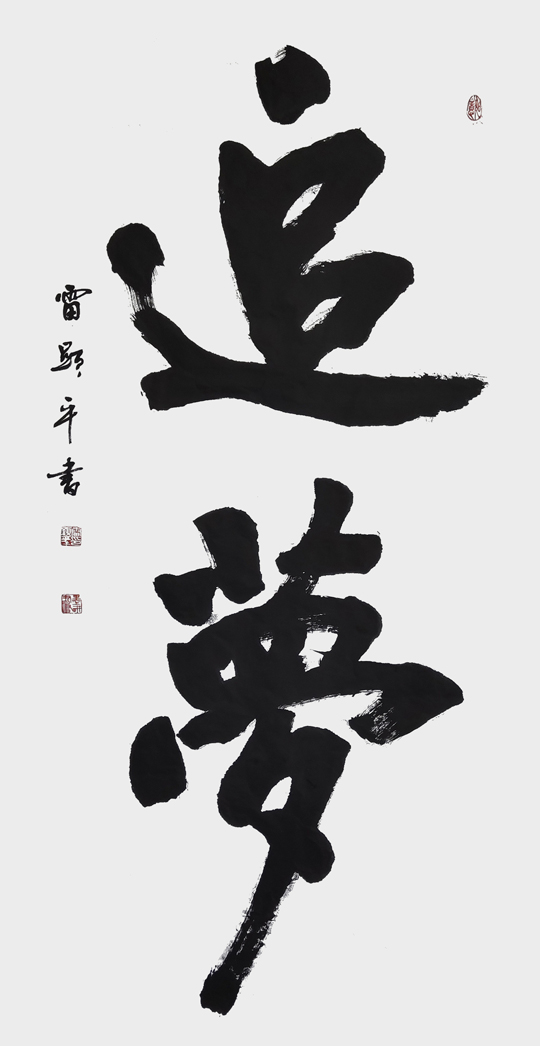 追夢
雷顯平書